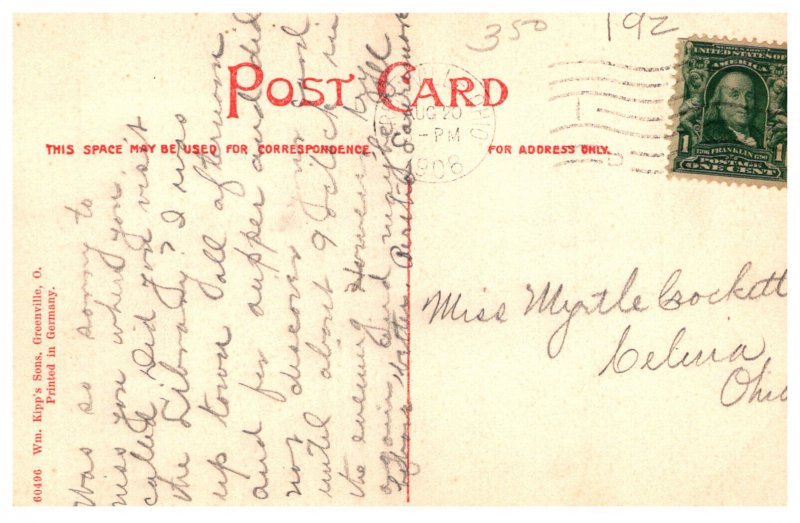 350
192
POST CARD
THIS SPACE MAY BE USED FOR CORRESPONDENCE
FOR ADDRESS ONLY.
AUG 20
-PM
1908
SERIES 1902
UNITED STATES OF
AMERICA
1706 FRANKLIN 1790
POSTAGE
1 ONE CENT 1
Miss Myrtle Cockett
Celina
Ohio
Was so sorry to
miss you when you
called. Did you visit
the Library? I was
up town all afternoon
and for supper and did
not discover your card
until about 9 o'clock in
the evening. However, call
again and maybe I'll
60496 Wm. Kipp's Sons, Greenville, O.
Printed in Germany.